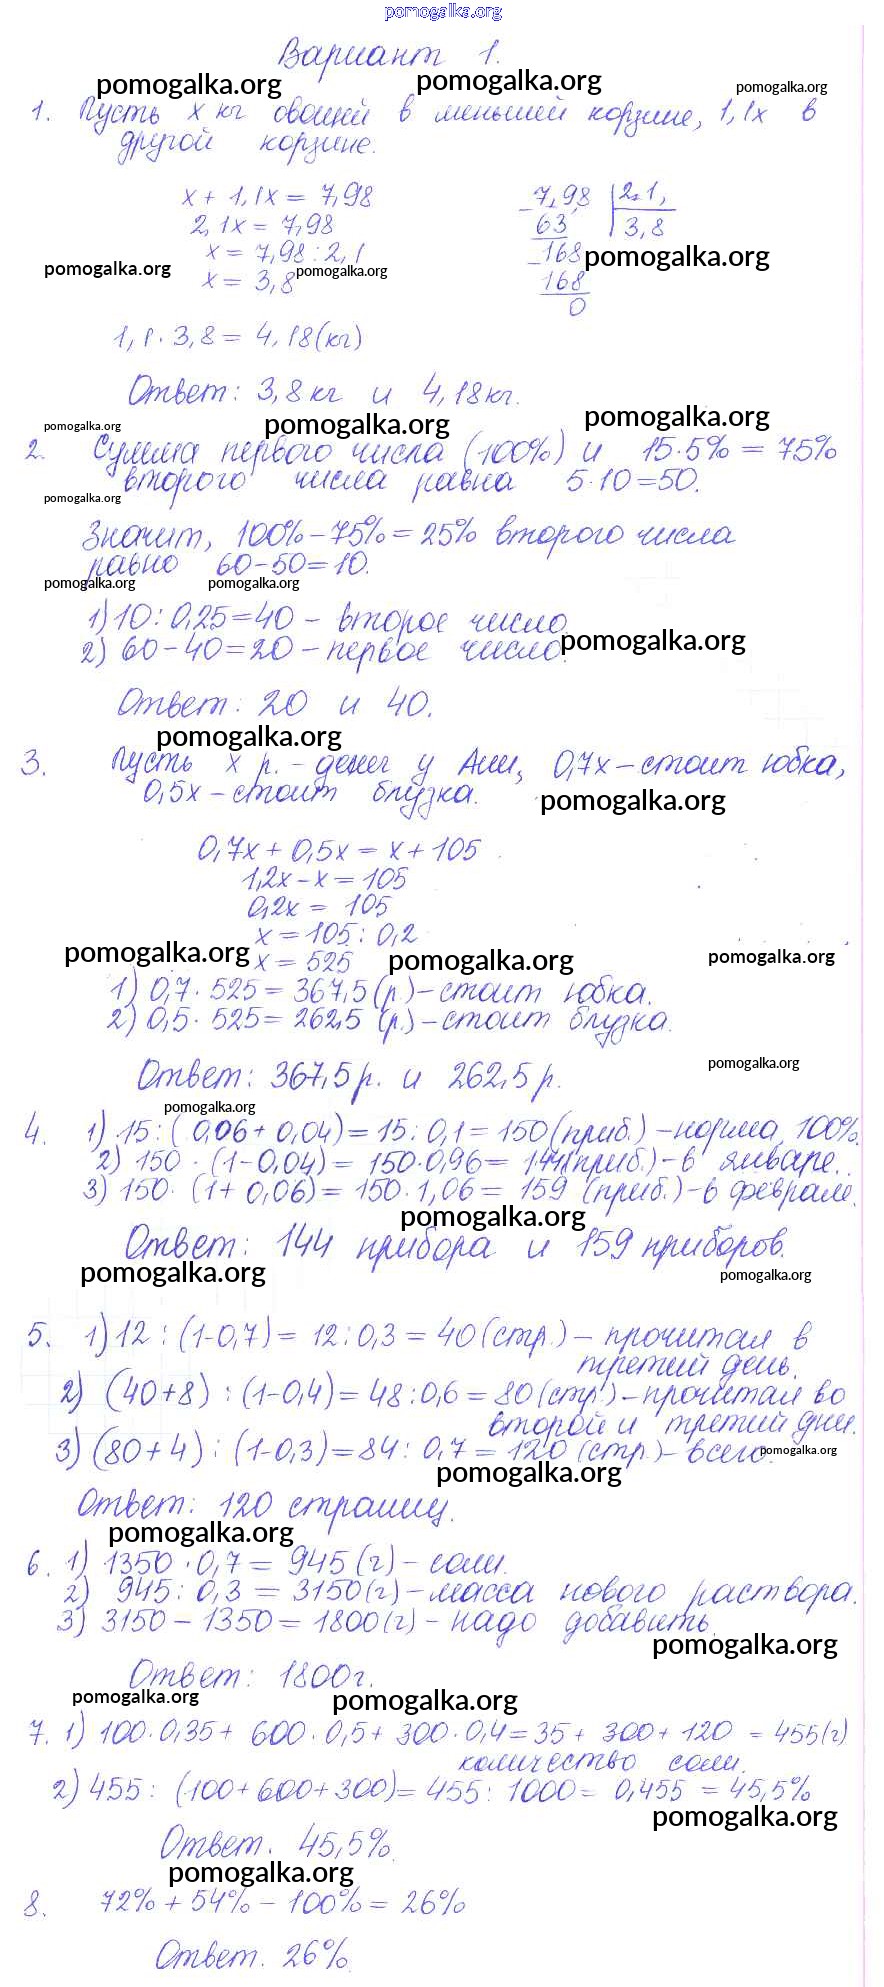 pomogalka.org
Вариант 1.
pomogalka.org pomogalka.org pomogalka.org
1. Пусть x кг овощей в меньшей корзине, 1,1x в
другой корзине.
x + 1,1x = 7,98
2,1x = 7,98
x = 7,98 : 2,1
x = 3,8
7,98 | 2,1
63 3,8
168
168
0
pomogalka.org pomogalka.org pomogalka.org
1,1 · 3,8 = 4,18 (кг)
Ответ: 3,8 кг и 4,18 кг.
pomogalka.org pomogalka.org pomogalka.org
2. Сумма первого числа (100%) и 15·5% = 75%
второго числа равна 5·10=50.
pomogalka.org
Значит, 100% – 75% = 25% второго числа
равно 60–50=10.
pomogalka.org pomogalka.org
1) 10 : 0,25=40 – второе число.
2) 60–40=20 – первое число.
pomogalka.org
Ответ: 20 и 40.
pomogalka.org
3. Пусть x р. – денег у Ани, 0,7x – стоит юбка,
0,5x – стоит блузка.
pomogalka.org
0,7x + 0,5x = x + 105
1,2x – x = 105
0,2x = 105
x = 105 : 0,2
x = 525
pomogalka.org pomogalka.org pomogalka.org
1) 0,7 · 525 = 367,5 (р.) – стоит юбка.
2) 0,5 · 525 = 262,5 (р.) – стоит блузка.
pomogalka.org
Ответ: 367,5 р. и 262,5 р.
pomogalka.org
4. 1) 15 : (0,06 + 0,04) = 15 : 0,1 = 150 (приб.) – норма, 100%.
2) 150 · (1–0,04) = 150·0,96 = 144 (приб.) – в январе.
3) 150 · (1+ 0,06) = 150·1,06 = 159 (приб.) – в феврале.
pomogalka.org
Ответ: 144 прибора и 159 приборов.
pomogalka.org pomogalka.org
5. 1) 12 : (1–0,7) = 12 : 0,3 = 40 (стр.) – прочитал в
третий день.
2) (40+8) : (1–0,4) = 48 : 0,6 = 80 (стр.) – прочитал во
второй и третий дни.
3) (80+4) : (1–0,3) = 84 : 0,7 = 120 (стр.) – всего.
pomogalka.org
pomogalka.org
Ответ: 120 страниц.
pomogalka.org
6. 1) 1350 · 0,7 = 945 (г) – соли.
2) 945 : 0,3 = 3150 (г) – масса нового раствора.
3) 3150 – 1350 = 1800 (г) – надо добавить.
pomogalka.org
Ответ: 1800 г.
pomogalka.org pomogalka.org
7. 1) 100·0,35 + 600·0,5 + 300·0,4 = 35 + 300 + 120 = 455 (г)
количество соли.
2) 455 : (100 + 600 + 300) = 455 : 1000 = 0,455 = 45,5%
pomogalka.org
Ответ. 45,5%.
pomogalka.org
8. 72% + 54% – 100% = 26%
Ответ. 26%.